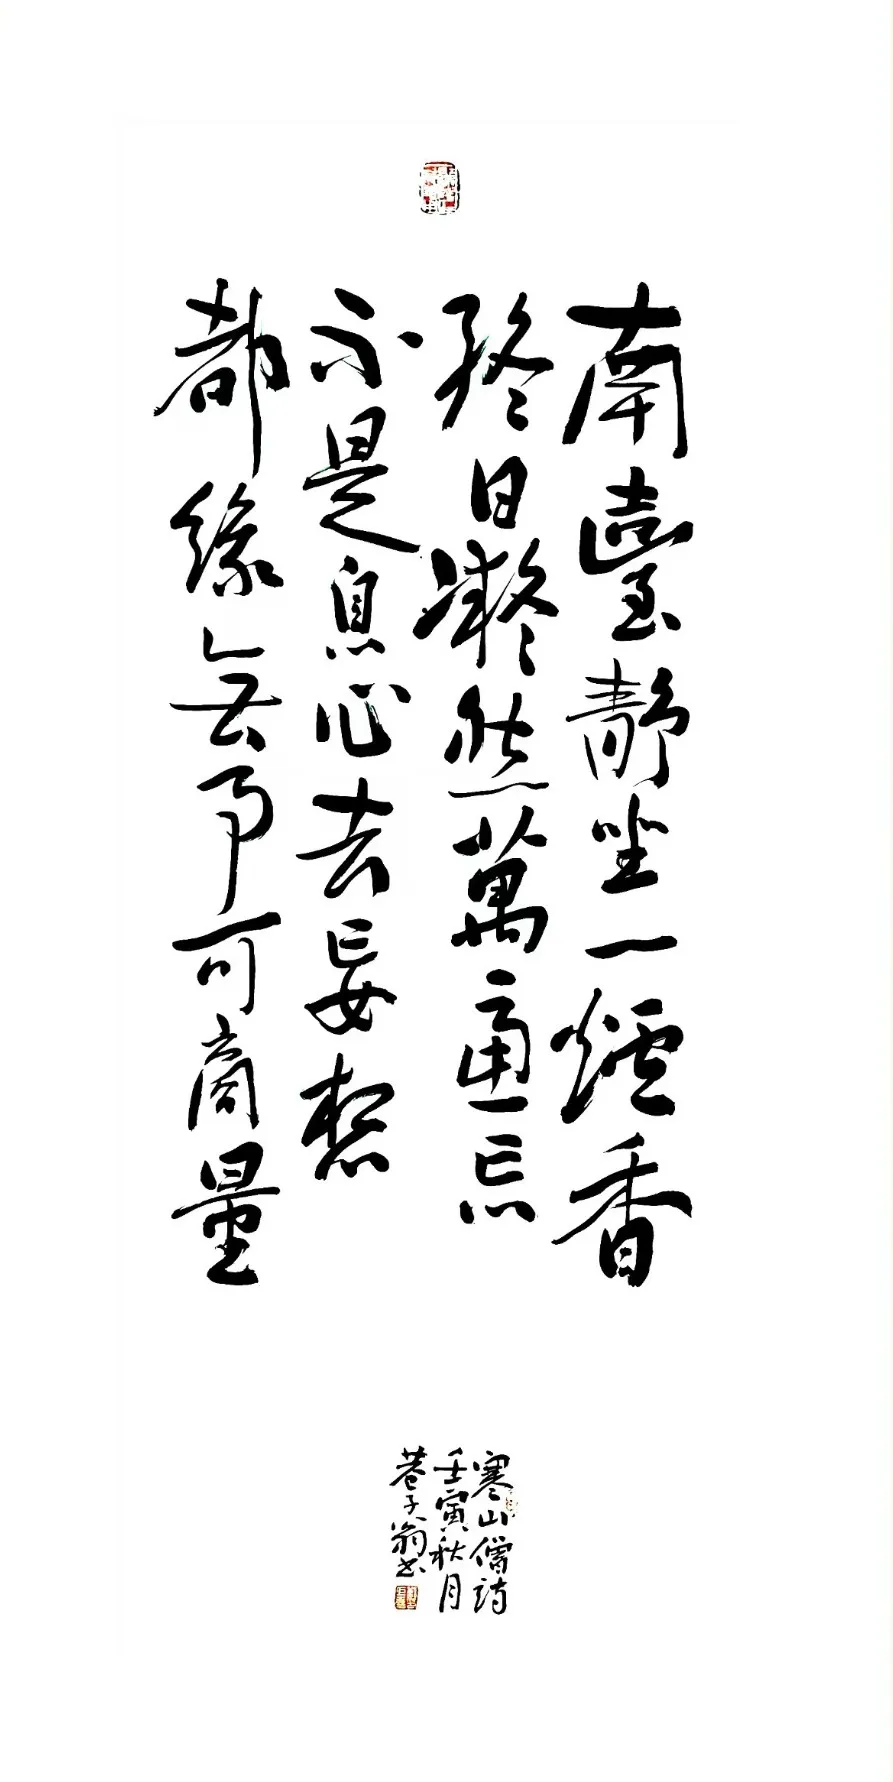 南臺靜坐一爐香
終日凝然萬慮忘
不是息心去妄想
都緣無事可商量
寒山僧詩
壬寅秋月
巷子翁書